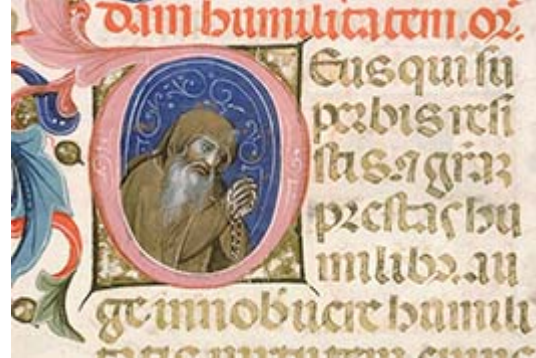 dam humilitatem. or̃.
Deus qui su
perbis resi
stis. ⁊ gr̃az
prestas hu
milibꝫ. au
ge in nob̃ uere humili
tatis uirtutem